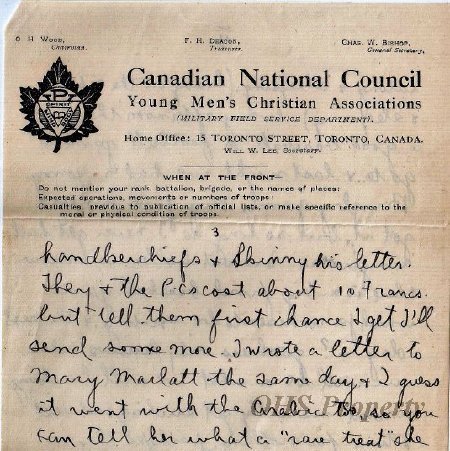 G H Wood, Chairman.
F. H. Deacon, Treasurer
Chas. W. Bishop, General Secretary.
Canadian National Council
Young Men's Christian Associations
(MILITARY FIELD SERVICE DEPARTMENT).
Home Office: 15 Toronto Street, Toronto, Canada.
Will W. Lee, Secretary.
WHEN AT THE FRONT—
Do not mention your rank, battalion, brigade, or the names of places:
Expected operations, movements or numbers of troops:
Casualties, previous to publication of official lists, or make specific reference to the
moral or physical condition of troops.
3
handkerchiefs & Skinny his letter.
They & the P.Cs cost about 10 Francs.
but tell them first chance I get I'll
send some more. I wrote a letter to
Mary Marlatt the same day & I guess
it went with the Arabic too so you
can tell her what a "rare treat" she
OHS Property